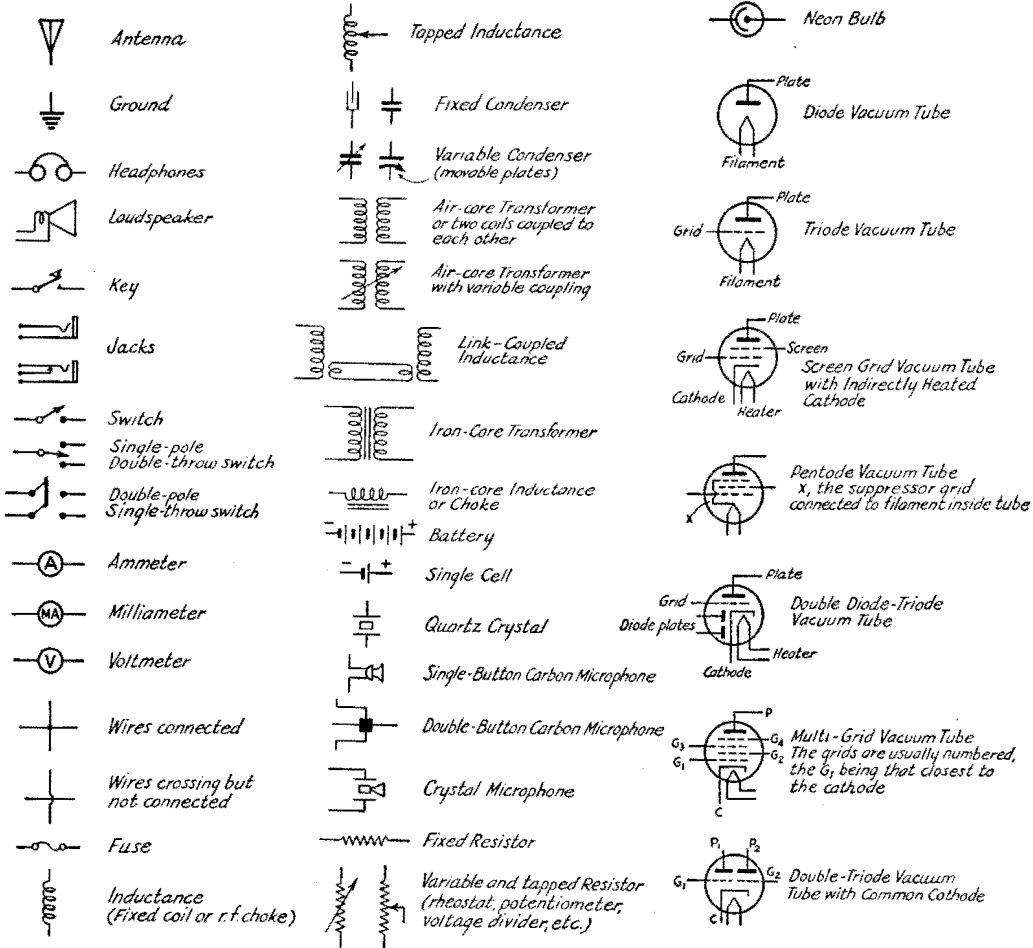 Antenna
Ground
Headphones
Loudspeaker
Key
Jacks
Switch
Single-pole
Double-throw switch
Double-pole
Single-throw switch
A
Ammeter
MA
Milliameter
V
Voltmeter
Wires connected
Wires crossing but
not connected
Fuse
Inductance
(Fixed coil or r.f. choke)
Tapped Inductance
Fixed Condenser
Variable Condenser
(movable plates)
Air-core Transformer
or two coils coupled to
each other
Air-core Transformer
with variable coupling
Link-Coupled
Inductance
Iron-Core Transformer
Iron-core Inductance
or Choke
- +
Battery
- +
Single Cell
Quartz Crystal
Single-Button Carbon Microphone
Double-Button Carbon Microphone
Crystal Microphone
Fixed Resistor
Variable and tapped Resistor
(rheostat, potentiometer,
voltage divider, etc.)
Neon Bulb
Plate
Diode Vacuum Tube
Filament
Plate
Grid
Triode Vacuum Tube
Filament
Plate
Screen
Grid
Screen Grid Vacuum Tube
with Indirectly Heated
Cathode
Cathode
Heater
Pentode Vacuum Tube
X, the suppressor grid
connected to filament inside tube
X
Plate
Grid
Diode plates
Double Diode-Triode
Vacuum Tube
Heater
Cathode
P
G3
G1
G4
G2
Multi-Grid Vacuum Tube
The grids are usually numbered,
the G1 being that closest to
the cathode
C
P1 P2
G1
G2
Double-Triode Vacuum
Tube with Common Cathode
C